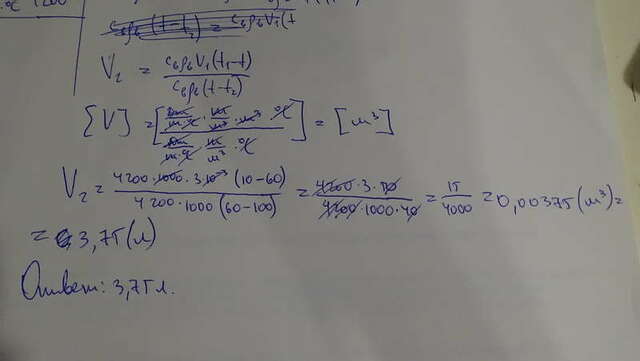 1200
V₂ = cвρвV₁(t₁-t) / cвρв(t-t₂)
[V] = [ (Дж/кг·°C · кг/м³ · м³ · °C) / (Дж/кг·°C · кг/м³ · °C) ] = [м³]
V₂ = 4200·1000·3·10⁻³(10-60) / 4200·1000(60-100) = 4200·3·50 / 4200·1000·40 = 15/4000 = 0,00375(м³) =
= 3,75(л)
Ответ: 3,75л.